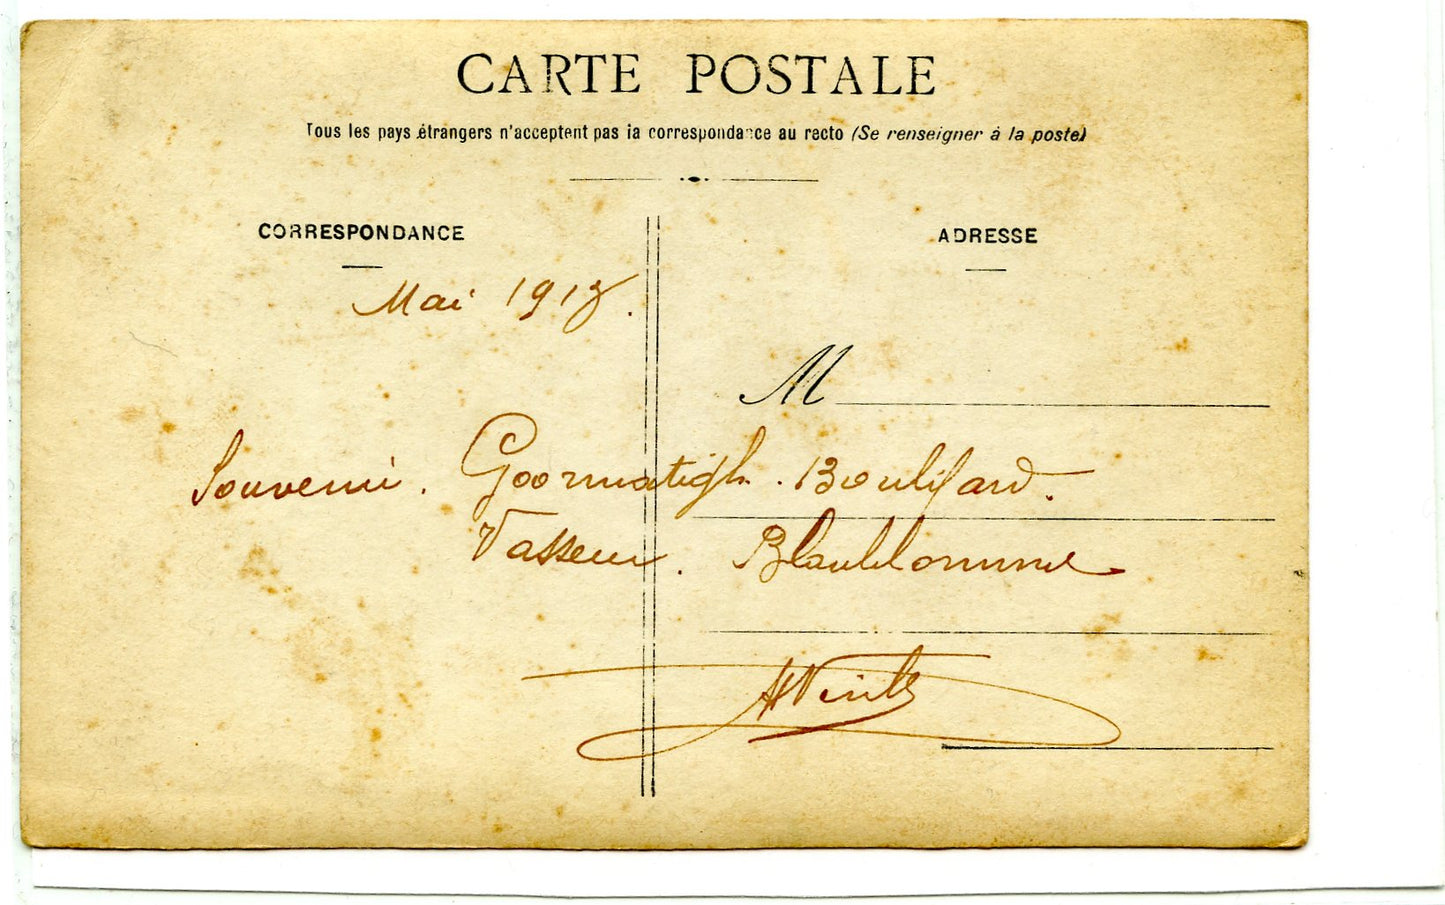 CARTE POSTALE
Tous les pays étrangers n'acceptent pas la correspondance au recto (Se renseigner à la poste)
CORRESPONDANCE
ADRESSE
Mai 1913.
M
Souvenir. Goormatigh. Boulifard.
Vasseur. Blanblomme